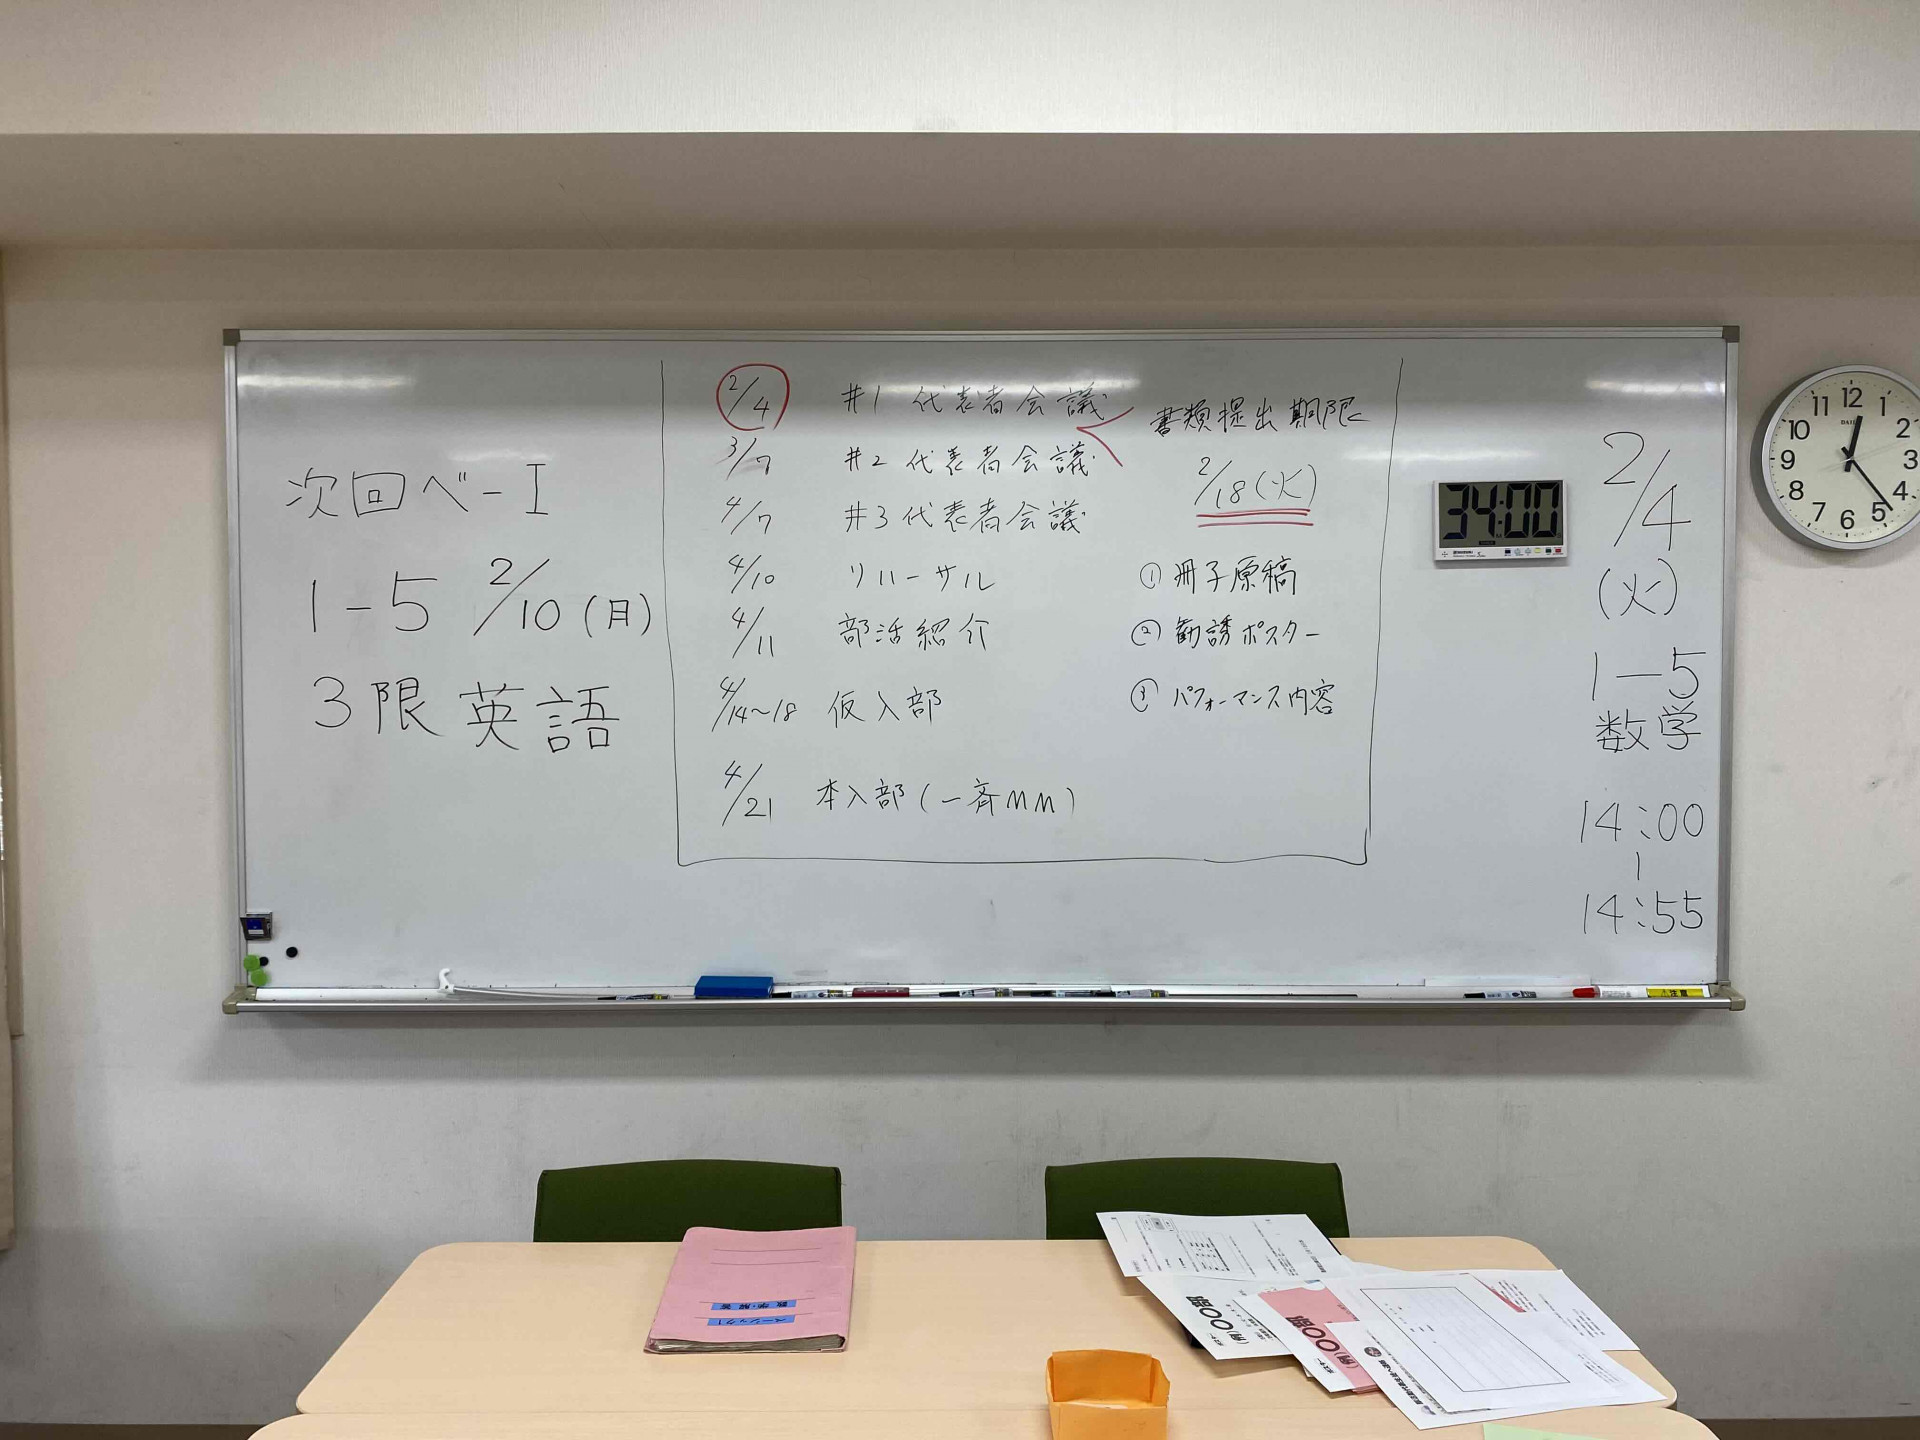 次回ベーI
1-5 2/10(月)
3限 英語
2/4 #1 代表者会議
3/7 #2 代表者会議
4/7 #3 代表者会議
4/10 リハーサル
4/11 部活紹介
4/14〜18 仮入部
4/21 本入部(一斉MM)
書類提出期限
2/18(火)
① 冊子原稿
② 勧誘ポスター
③ パフォーマンス内容
34:00
2/4
(火)
1-5
数学
14:00
14:55
12
1
2
3
4
5
6
7
8
9
10
11
注意
ベーシック1
数学・解答
(例)〇〇部
(例)〇〇部